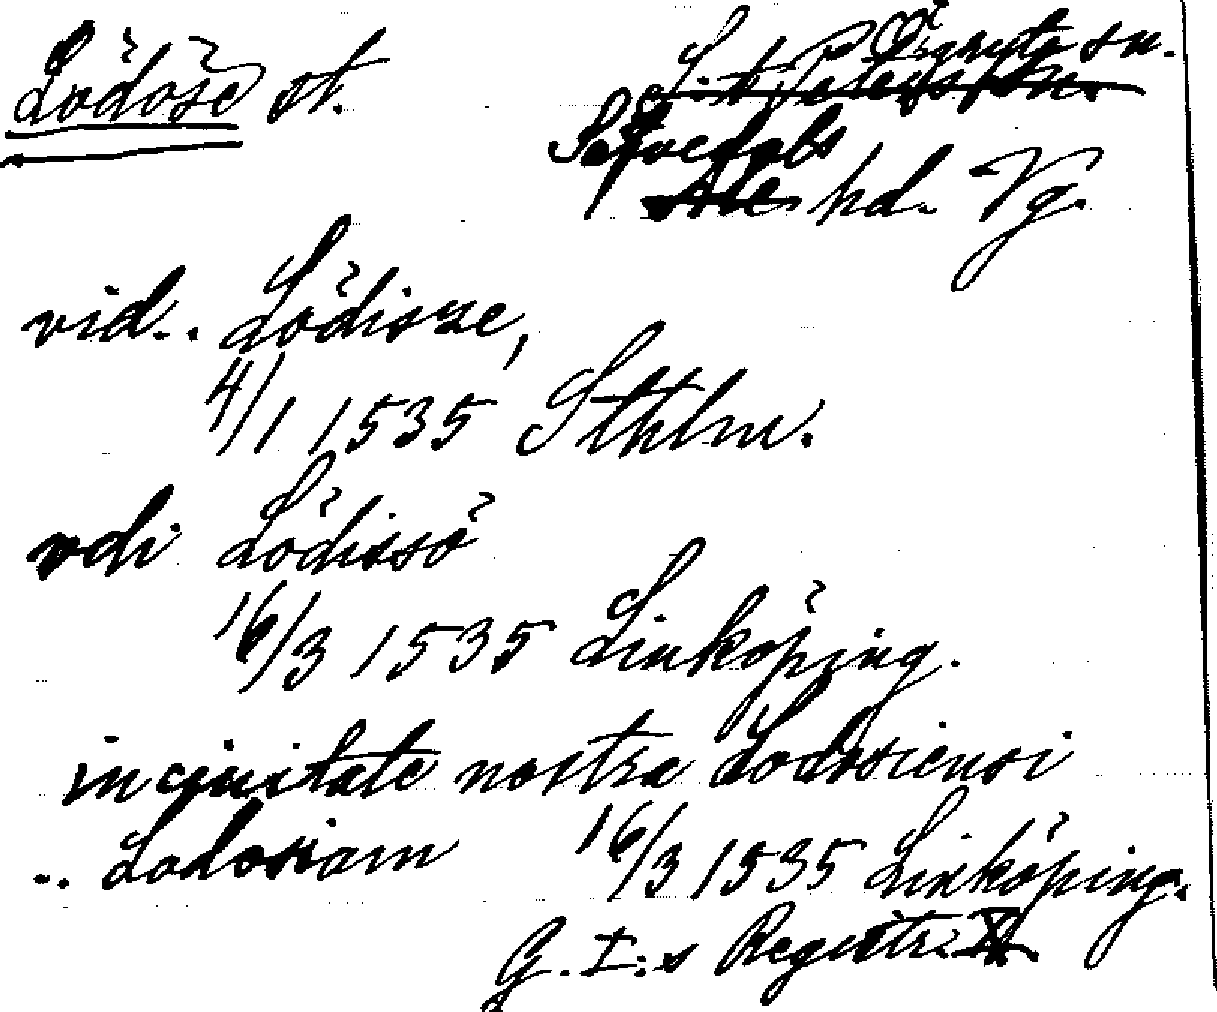 Lödöse st. Örgryte sn.
S:t Peders sn.
Sävedals
Ale hd. Vg.
vid.. Lödisze,
4/1 1535 Sthlm.
vdi Lödissö
16/3 1535 Linköping.
in ciuitate nostra Lodosiensi
.. Lodosiam 16/3 1535 Linköping.
G. I:s Registr. X